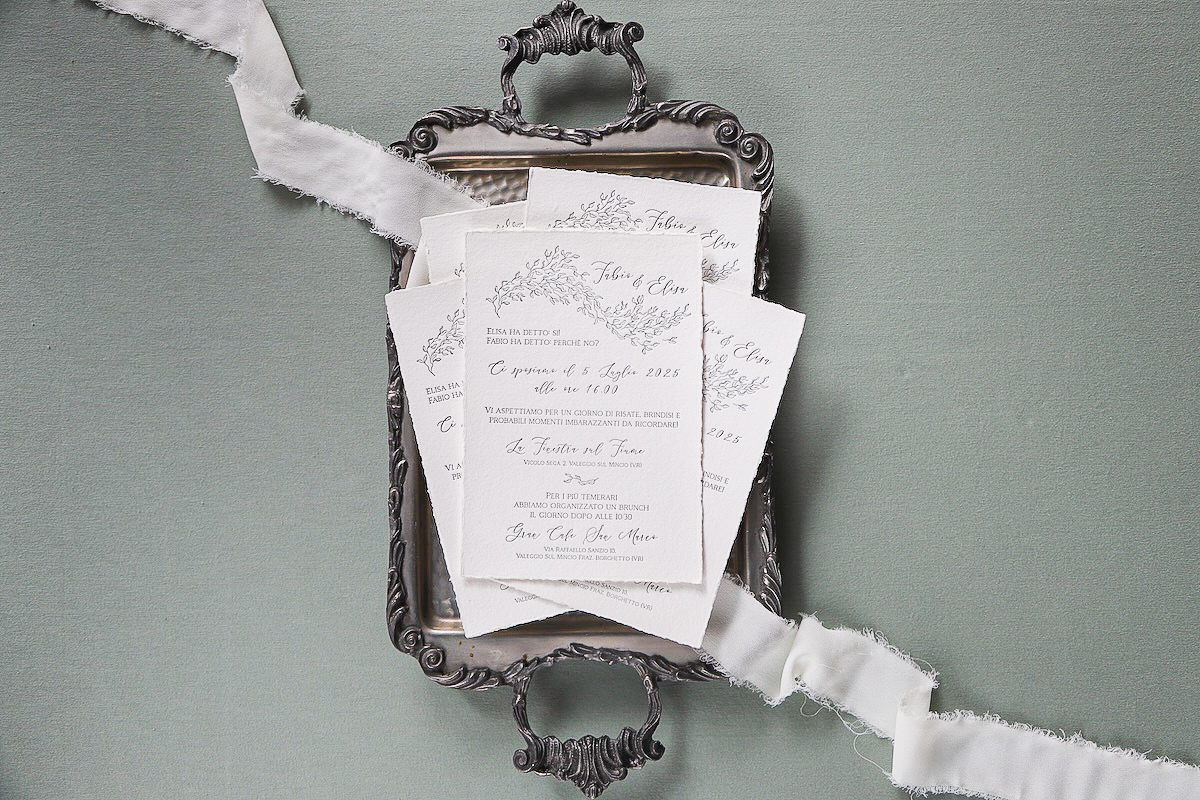 Fabio
& Elisa
Fabio
& Elisa
Elisa ha detto: sì!
Fabio ha detto: perchè no?
Ci sposiamo il 5 Luglio 2025
alle ore 16.00
Vi aspettiamo per un giorno di risate, brindisi e
probabili momenti imbarazzanti da ricordare!
La Finestra sul Fiume
Vicolo Sega 2 Valeggio sul Mincio (VR)
Per i più temerari
abbiamo organizzato un brunch
il giorno dopo alle 10:30
Gran Cafè San Marco
Via Raffaello Sanzio 10,
Valeggio Sul Mincio Fraz. Borghetto (VR)
Elisa ha
Fabio ha
Ci
Vi a
& Elisa
2025
Marco
Sanzio 10,
Mincio Fraz. Borghetto (VR)